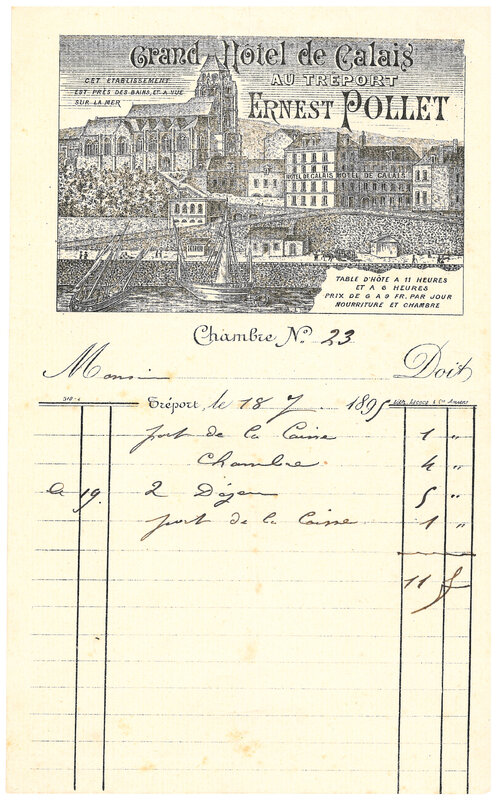 Grand Hôtel de Calais
AU TRÉPORT
ERNEST POLLET
CET ETABLISSEMENT
EST PRÈS DES BAINS, ET A VUE
SUR LA MER
HOTEL DE CALAIS HOTEL DE CALAIS
TABLE D'HÔTE A 11 HEURES
ET A 6 HEURES
PRIX DE 6 A 9 FR. PAR JOUR
NOURRITURE ET CHAMBRE
Chambre No. 23
Monsieur Doit
Tréport, le 18 7 1895 Lith. Lecocq & Cie Amiens
port de la Caisse 1 "
Chambre 4 "
le 19. 2 Déjeu 5 "
port de la Caisse 1 "
11 f